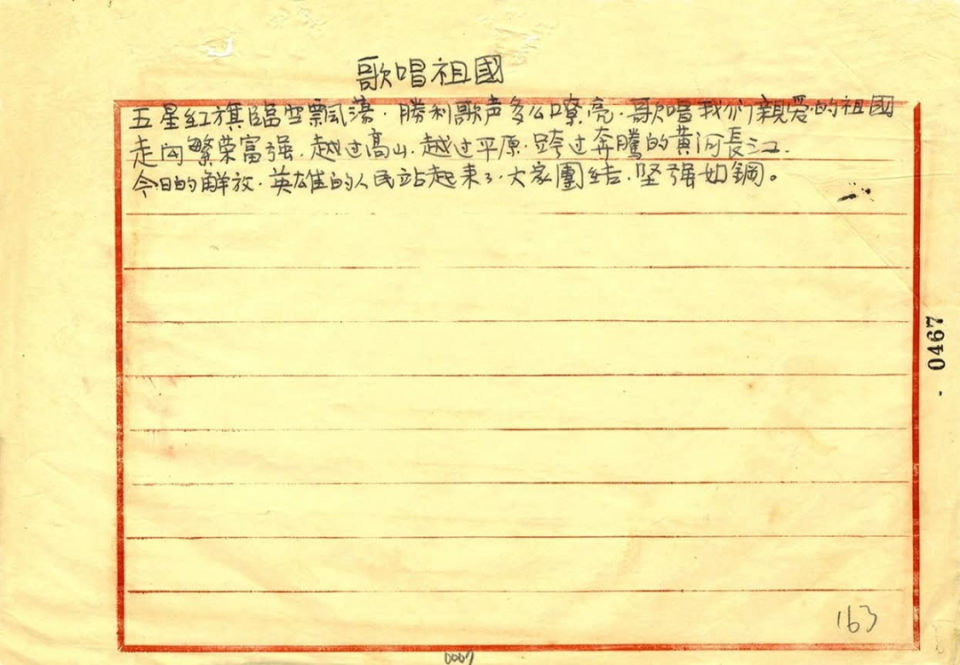 歌唱祖國
五星紅旗臨空飄蕩．勝利歌声多么嘹亮．歌唱我们親爱的祖國
走向繁荣富强．越过高山．越过平原．跨过奔騰的黄河長江．
今日的解放．英雄的人民站起来了．大家團结．坚强如鋼。
0467
163
0067